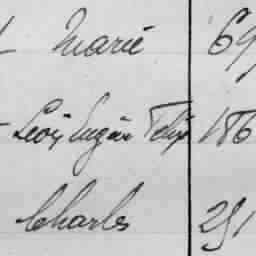 Marie 69
Léon Eugène Félix 186
Charles 251